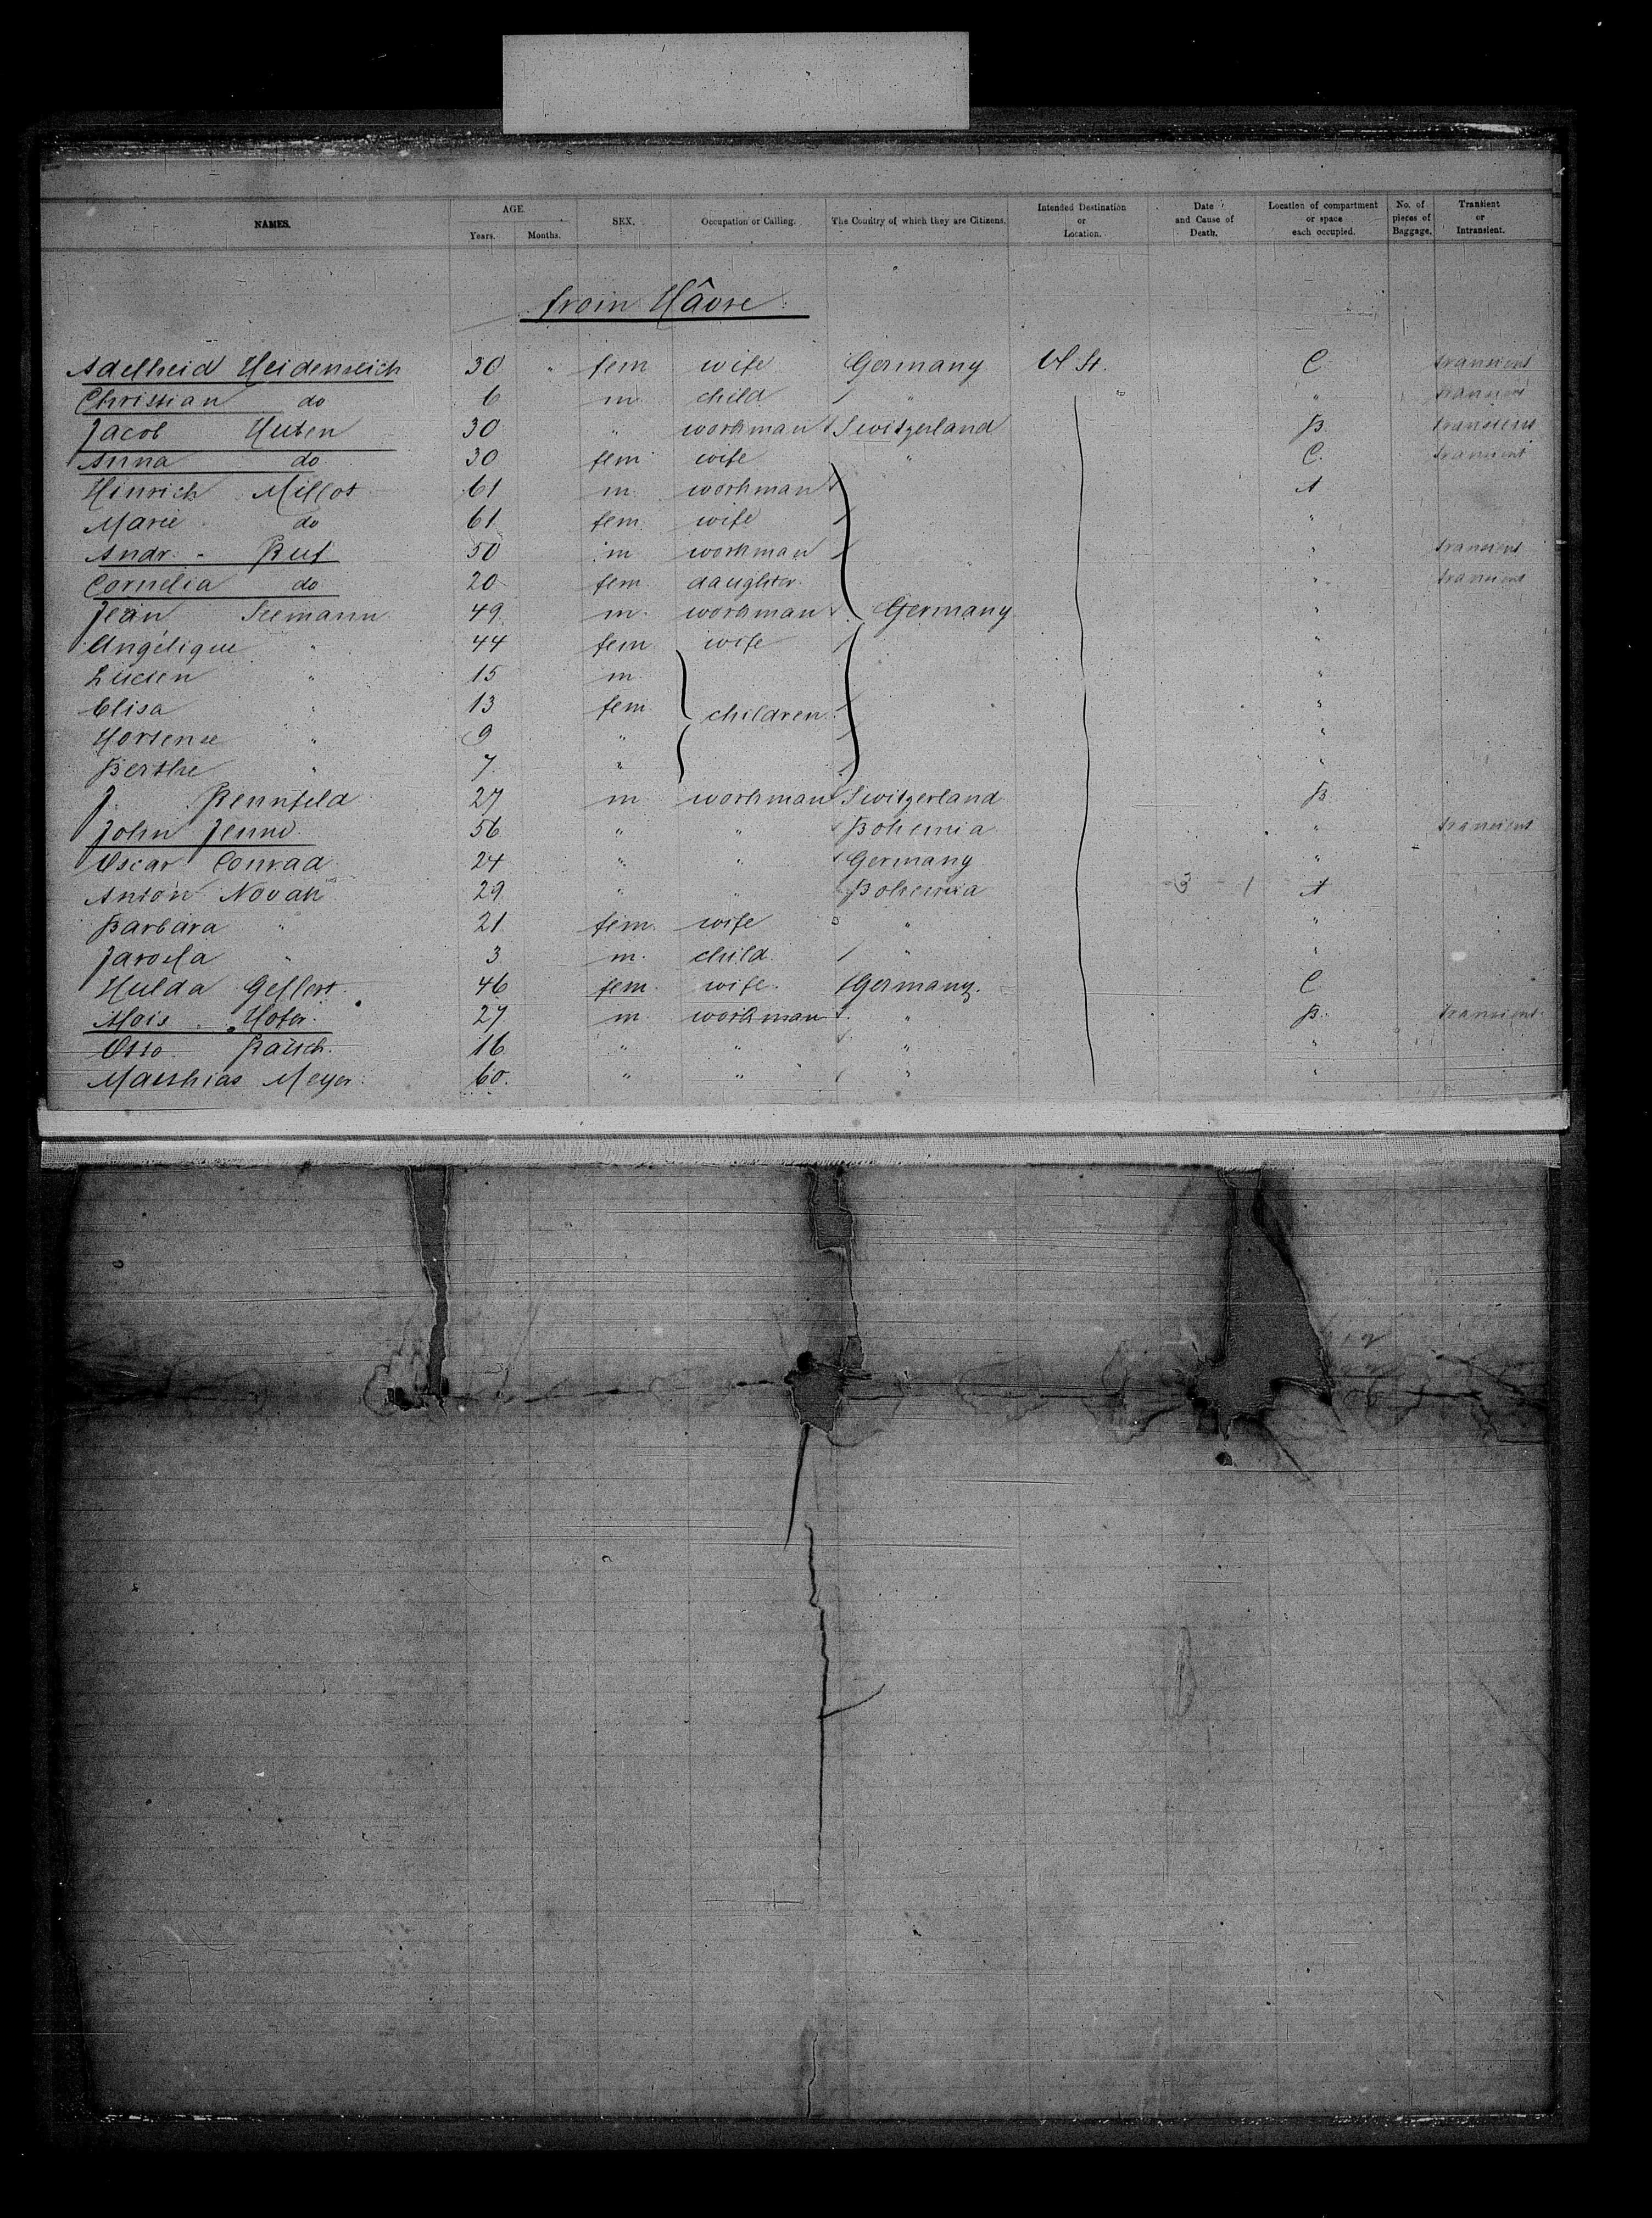 NAMES. AGE. Years. Months. SEX. Occupation or Calling. The Country of which they are Citizens. Intended Destination or Location. Date and Cause of Death. Location of compartment or space each occupied. No. of pieces of Baggage. Transient or Intransient.
from Hâvre
Adelheid Heidenreich 30 " fem wife Germany U St. C transient
Christian do 6 m child " " " transient
Jacob Huten 30 " workman Switzerland B transient
Anna do 30 fem wife " C. transient
Hinrich Millot 61 m workman A
Marie do 61 fem. wife "
Andr. Ruf 50 m workman " transient
Cornelia do 20 fem daughter " transient
Jean Seemann 49 m. workman Germany "
Angélique " 44 fem wife "
Lucien " 15 m "
Elisa " 13 fem children "
Hortense " 9 " "
Berthe " 7 " "
J. Rennfeld 27 m workman Switzerland B
John Jenne 56 " " Bohemia " transient
Oscar Conrad 24 " " Germany "
Anton Novak 29 " " Bohemia 3 - 1 A
Barbara " 21 fem. wife " "
Jarosla " 3 m. child " "
Hulda Geffert 46 fem. wife. Germany. C
Alois Hofer. 27 m workman " B. transient
Otto Rausch. 16 " " " "
Matthias Meyer 60. " " " "